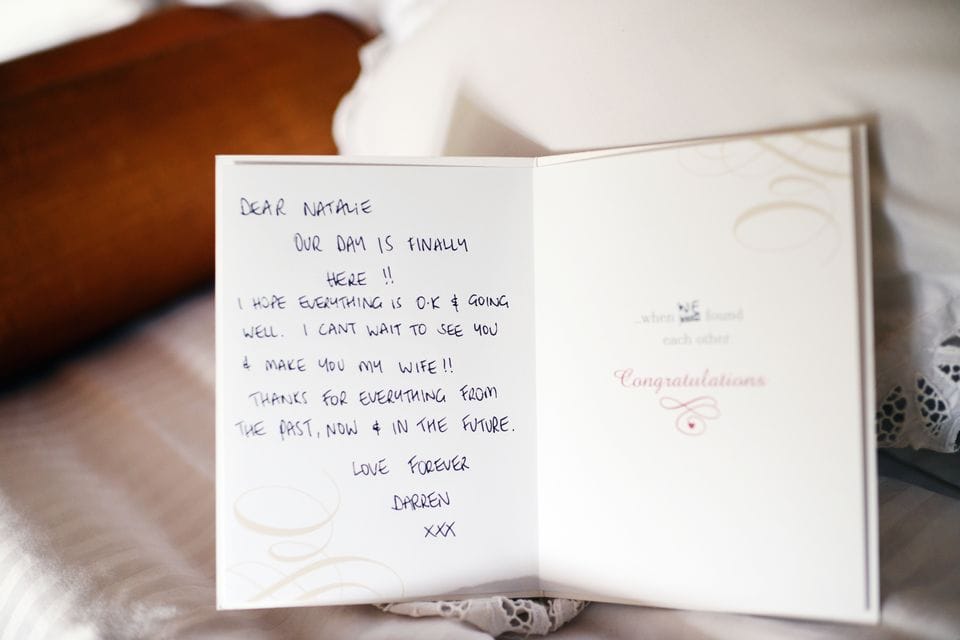 DEAR NATALIE
OUR DAY IS FINALLY
HERE !!
I HOPE EVERYTHING IS O.K & GOING
WELL. I CANT WAIT TO SEE YOU
& MAKE YOU MY WIFE!!
THANKS FOR EVERYTHING FROM
THE PAST, NOW & IN THE FUTURE.
LOVE FOREVER
DARREN
XXX
...when WE found
each other
Congratulations